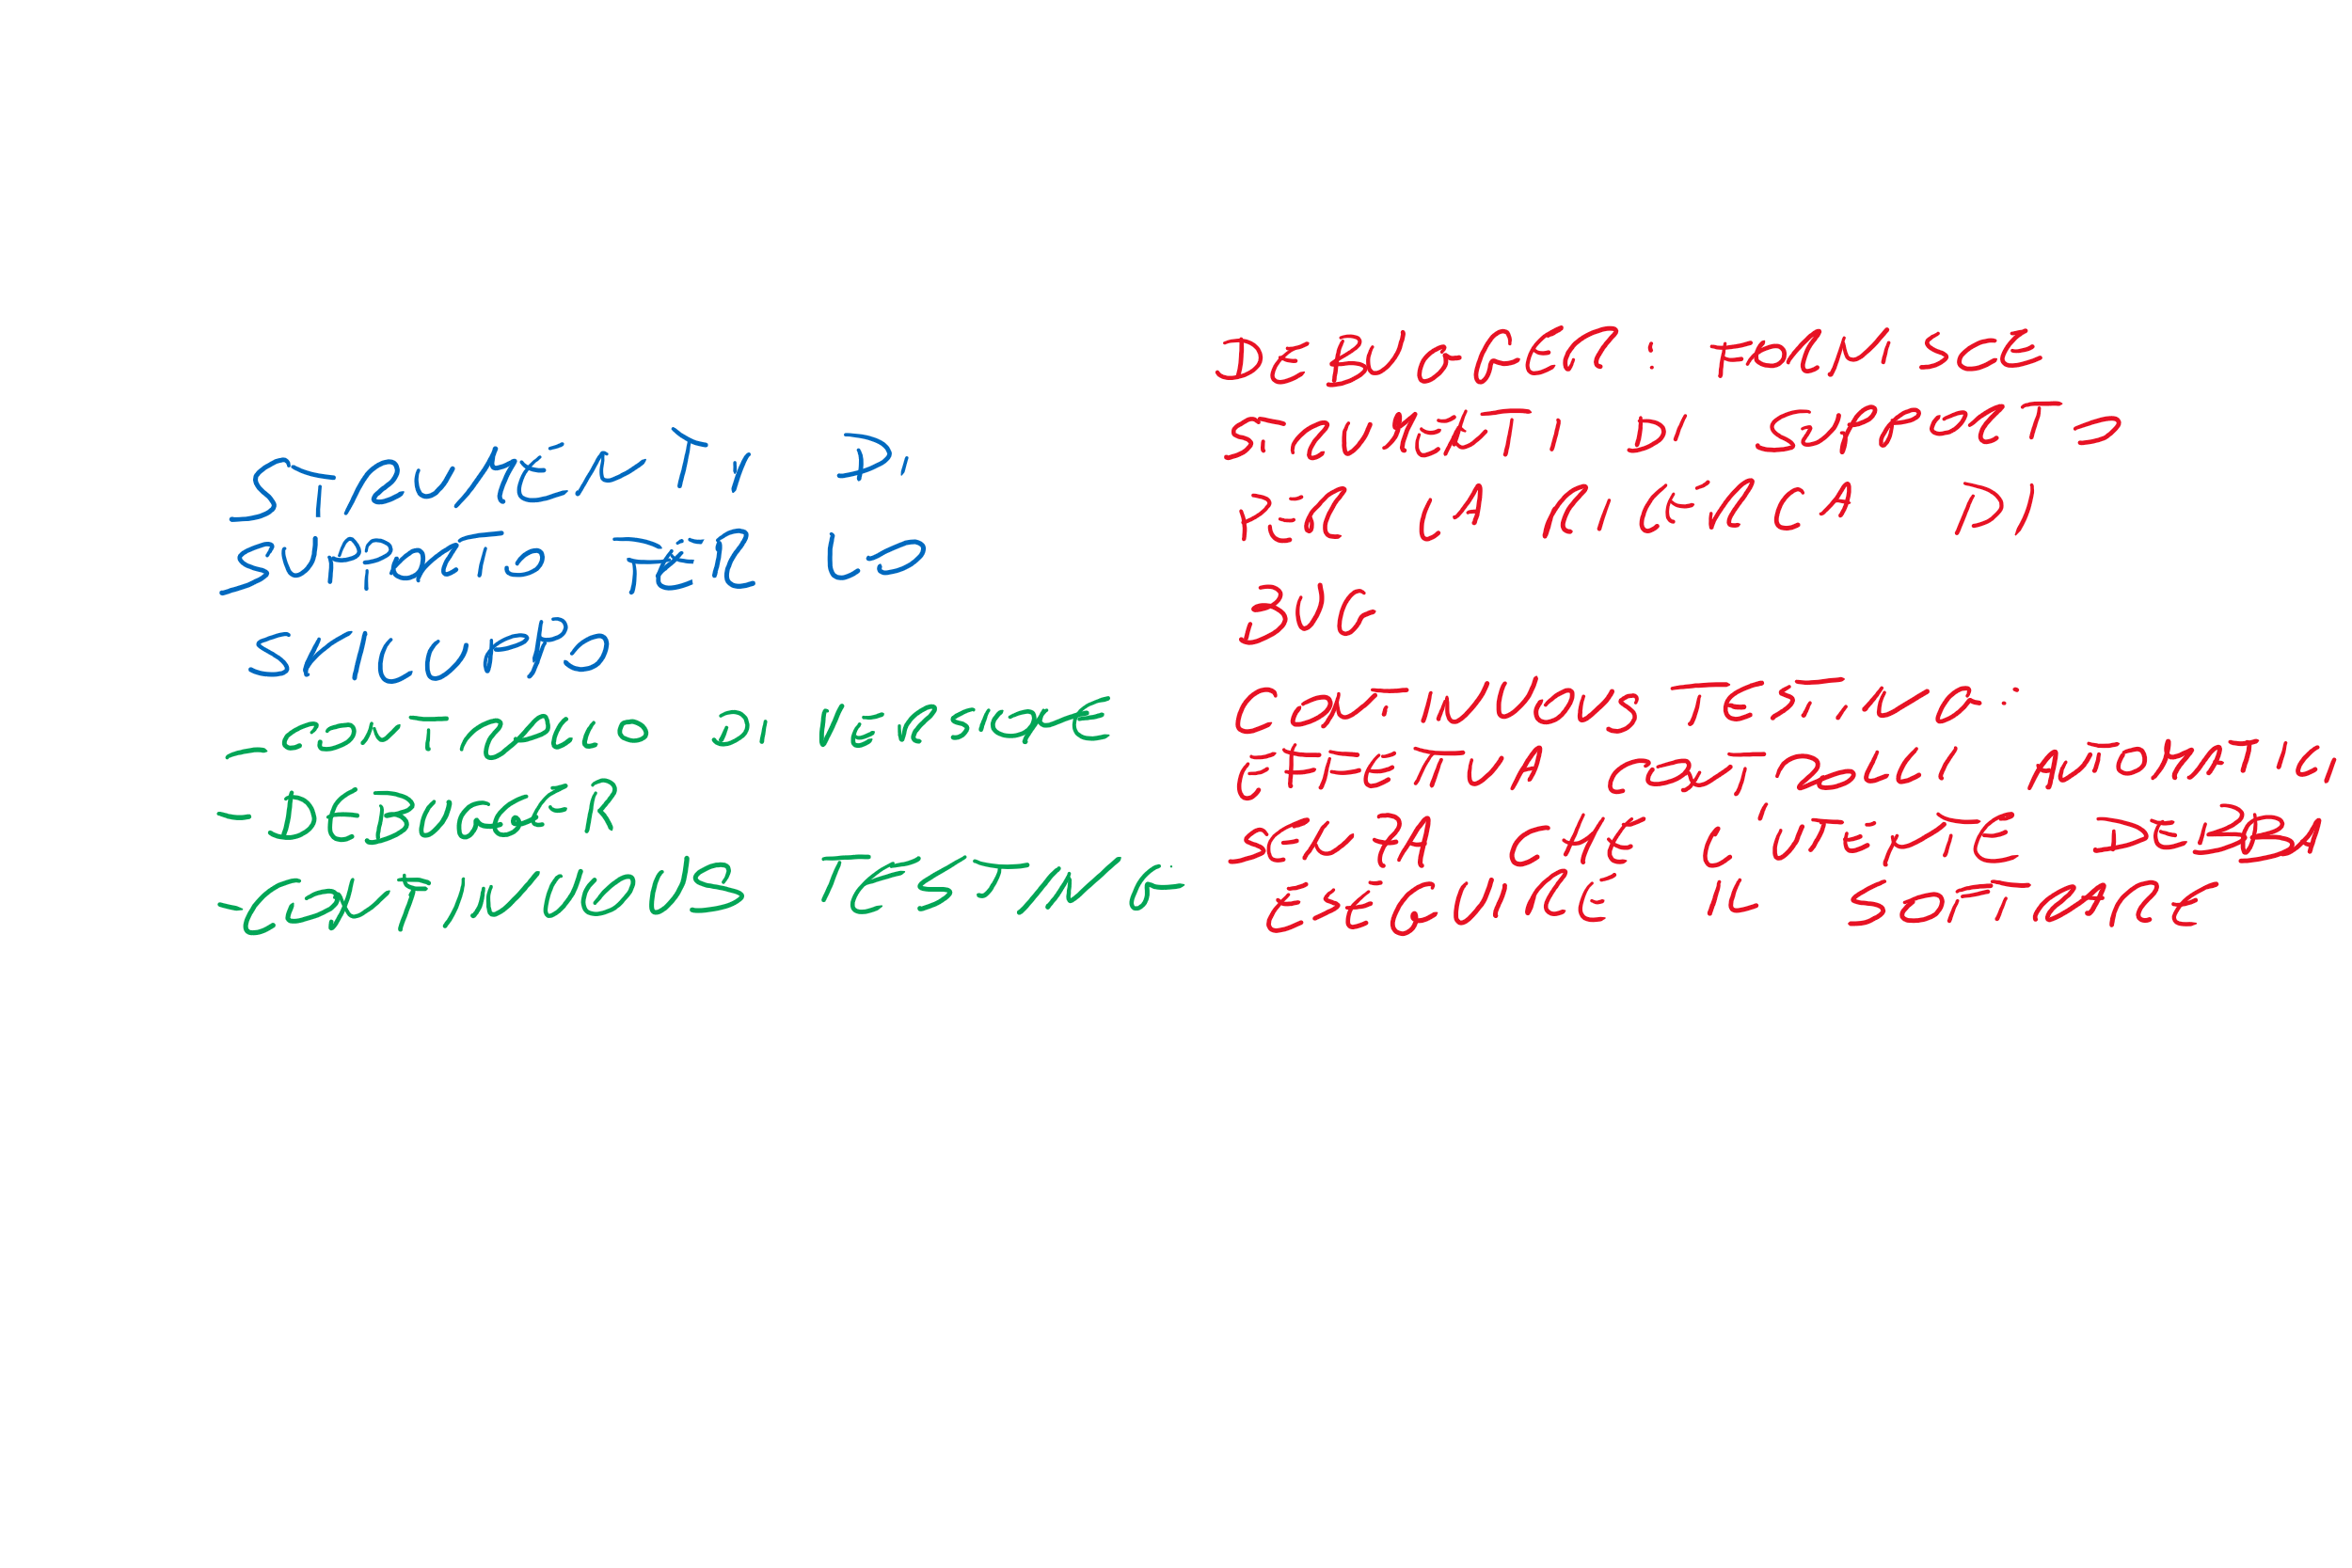 STRUMENTI DI
SUPPORTO PER LO
SVILUPPO
- CONTROLLO DI VERSIONE
- DEBUGGER
- CONTINUOUS TESTING
DEBUGGER: FORNISCE
STRUMENTI DI SUPPORTO
PER LA RICERCA DI
BUG
CONTINUOUS TESTING:
EFFETTUA CONTROLLI AUTOMATICI
SENZA CHE L'UTENTE DEBBA
ESEGUIRE IL SOFTWARE